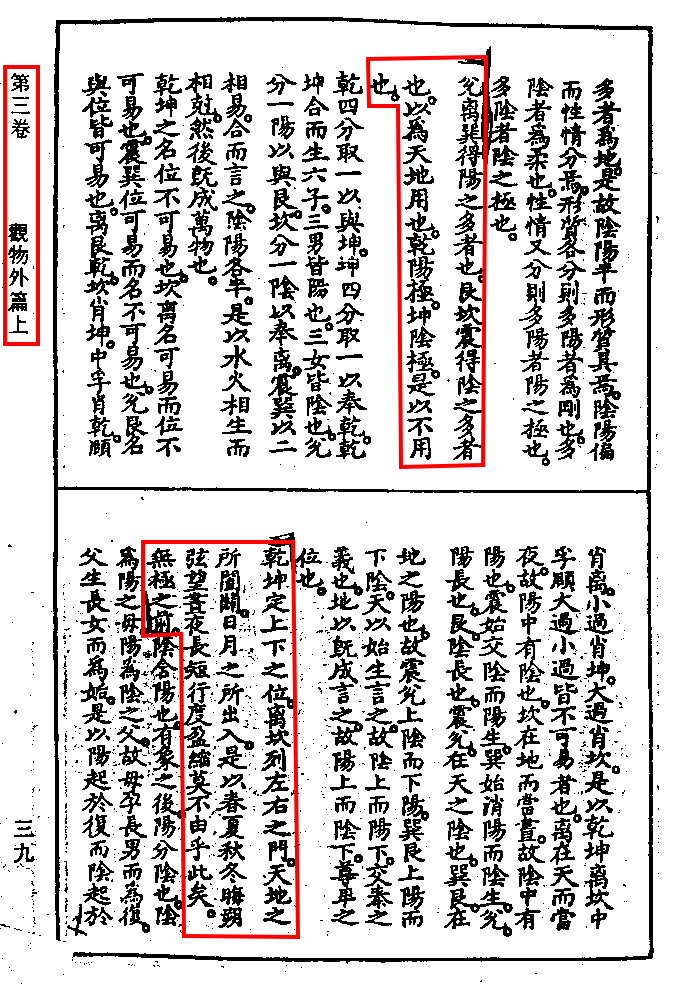 第三卷 觀物外篇上
多者爲地。是故陰陽半而形質具焉。陰陽偏
而性情分焉。形質各分則多陽者爲剛也。多
陰者爲柔也。性情又分則多陽者陽之極也。
多陰者陰之極也。
兌離巽得陽之多者也。艮坎震得陰之多者
也。以為天地用也。乾陽極。坤陰極。是以不用
也。
乾四分取一以與坤。坤四分取一以奉乾。乾
坤合而生六子。三男皆陽也。三女皆陰也。兌
分一陽以與艮。坎分一陰以奉離。震巽以二
相易。合而言之。陰陽各半。是以水火相生而
相尅。然後旣成萬物也。
乾坤之名位不可易也。坎離名可易而位不
可易也。震巽位可易而名不可易也。兌艮名
與位皆可易也。離肖乾。坎肖坤。中孚肖乾。頤
肖離。小過肖坤。大過肖坎。是以乾坤離坎中
孚頤大過小過皆不可易者也。離在天而當
夜。故陽中有陰也。坎在地而當晝。故陰中有
陽也。震始交陰而陽生。巽始消陽而陰生。兌
陽長也。艮陰長也。震兌在天之陰也。巽艮在
地之陽也。故震兌上陰而下陽。巽艮上陽而
下陰。天以始生言之。故陰上而陽下。交泰之
義也。地以旣成言之。故陽上而陰下。尊卑之
位也。
乾坤定上下之位。離坎列左右之門。天地之
所闔闢。日月之所出入。是以春夏秋冬晦朔
弦望晝夜長短行度盈縮莫不由乎此矣。
無極之前。陰含陽也。有象之後。陽分陰也。陰
爲陽之母。陽為陰之父。故母孕長男而為復。
父生長女而為姤。是以陽起於復而陰起於
三九